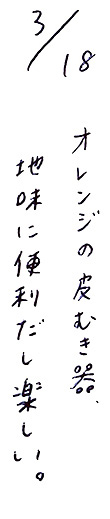 3/18
オレンジの皮むき器、
地味に便利だし楽しい。